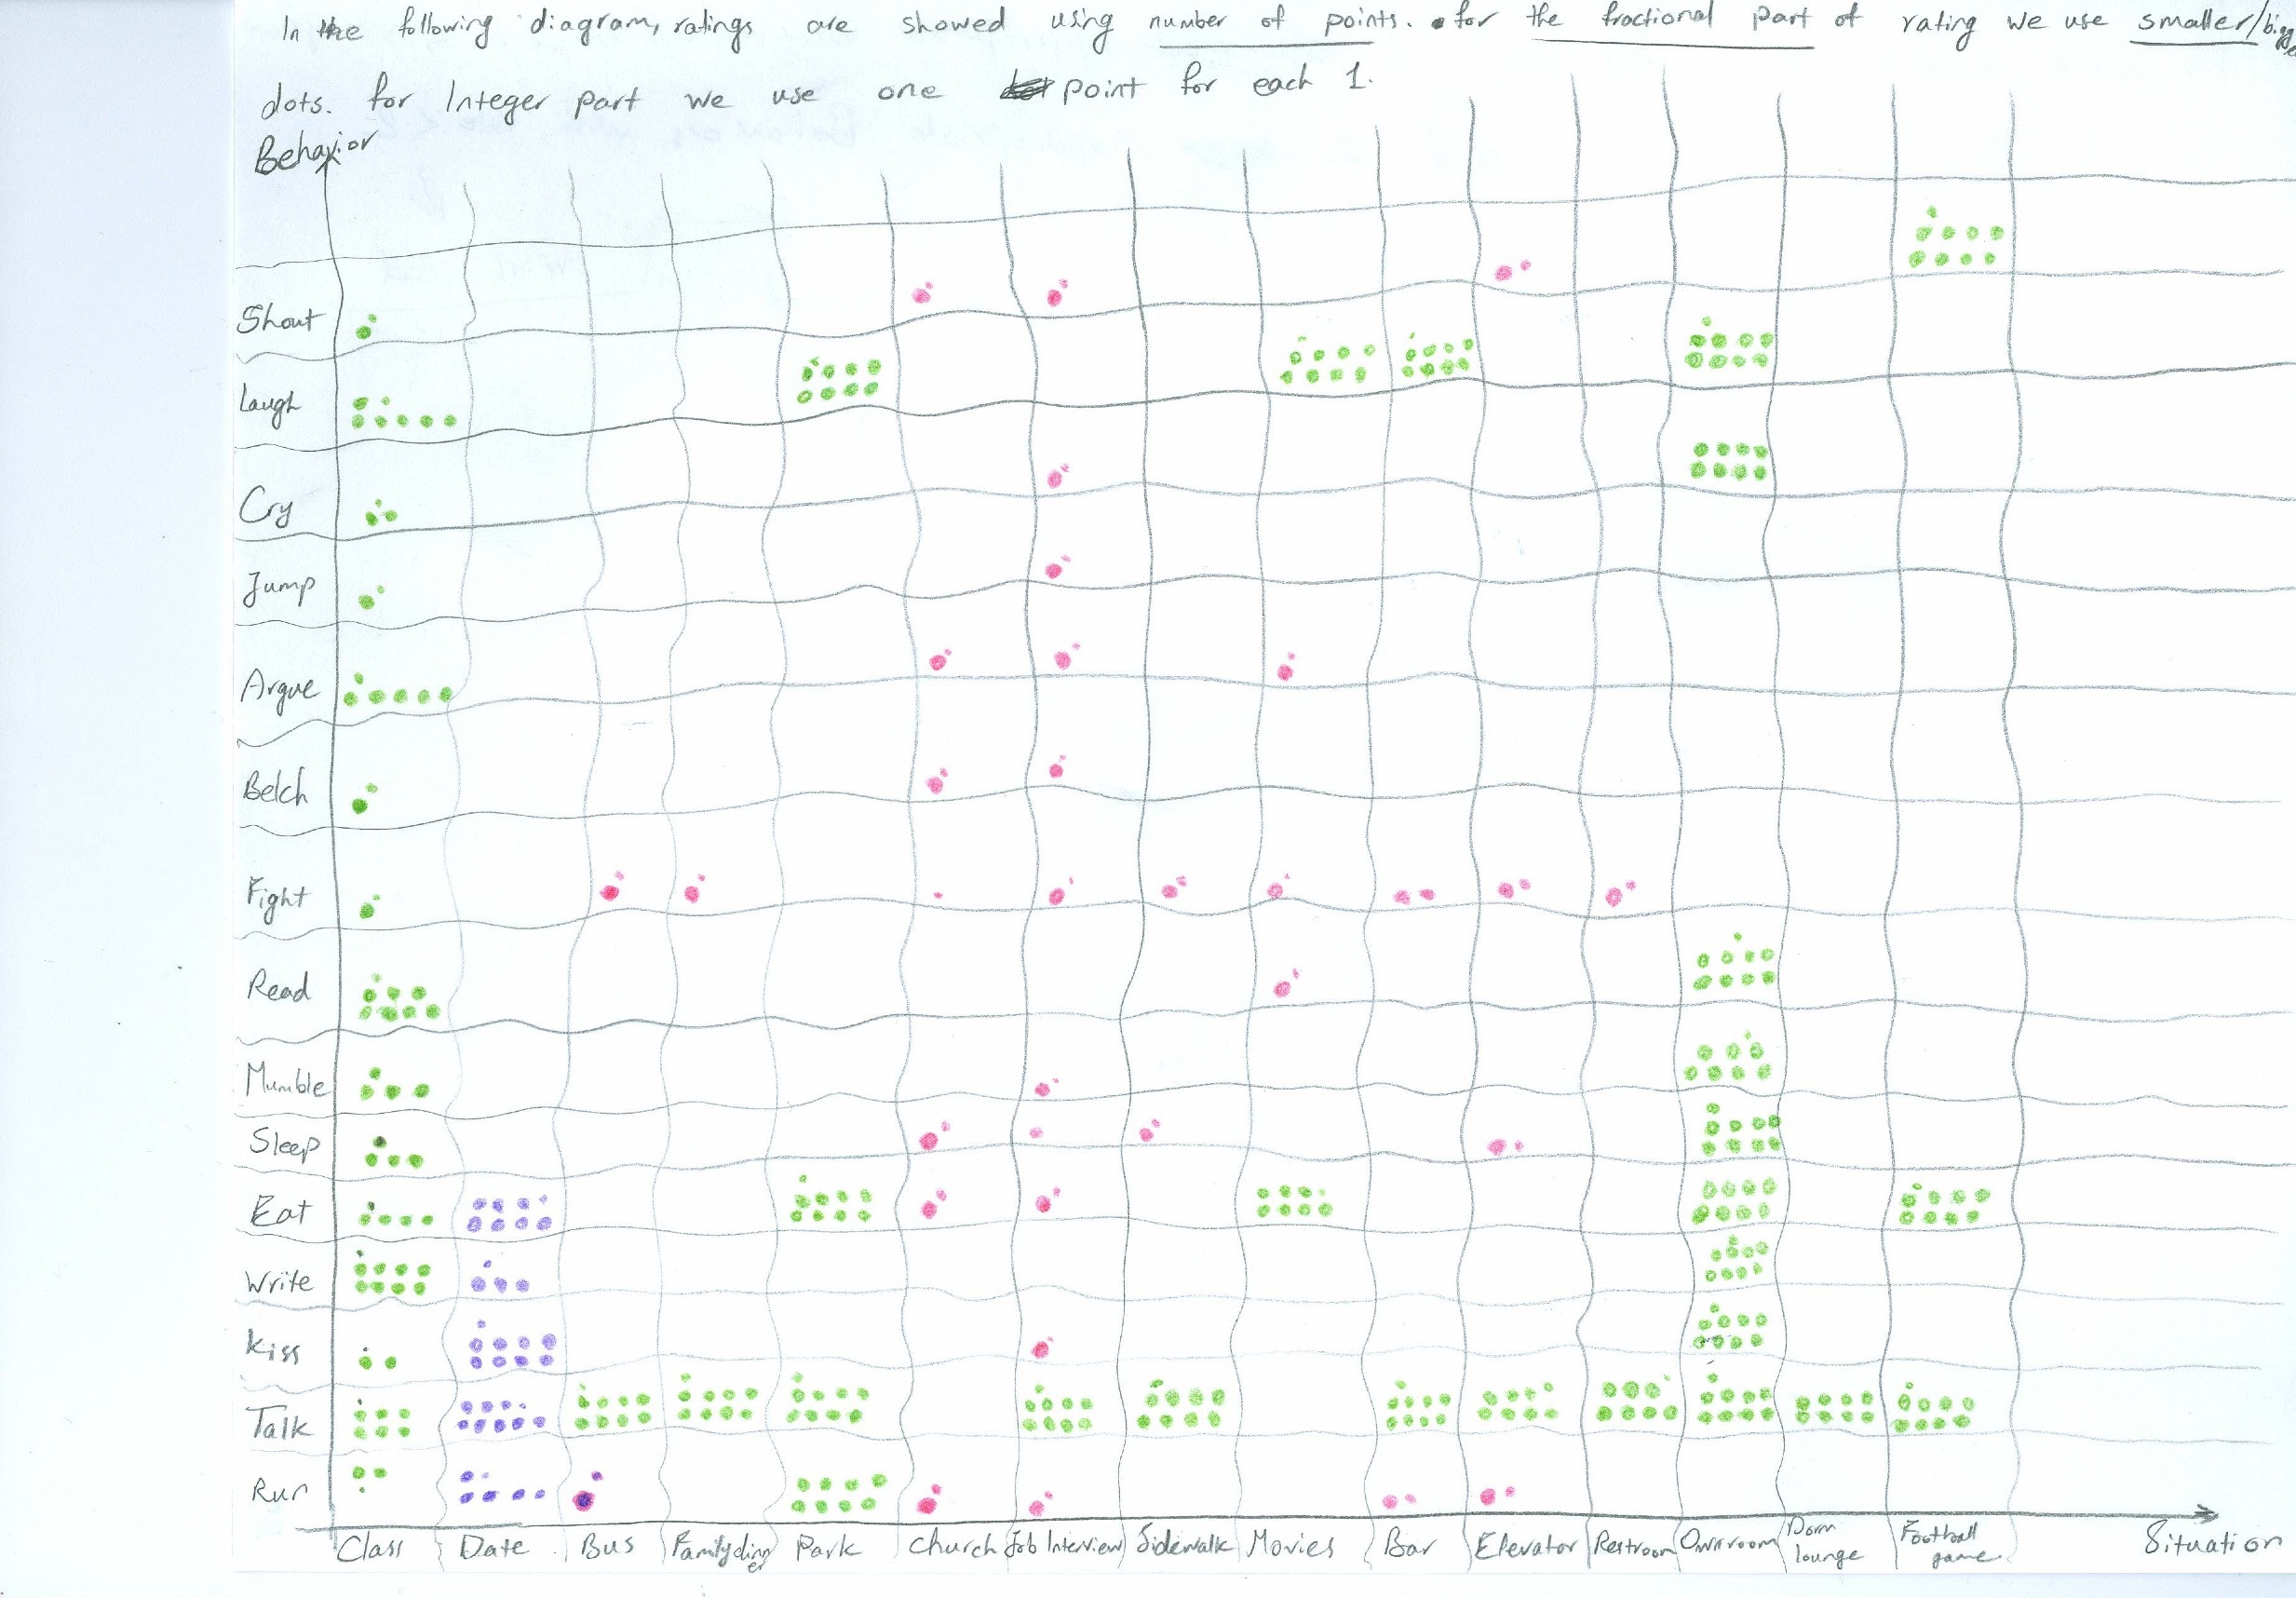 In the following diagram, ratings are showed using number of points. for the fractional part of rating we use smaller/bigge
dots. for Integer part we use one point for each 1.
Behavior
Shout
Laugh
Cry
Jump
Argue
Belch
Fight
Read
Mumble
Sleep
Eat
Write
Kiss
Talk
Run
Class Date Bus Family dinner Park Church Job Interview Sidewalk Movies Bar Elevator Restroom Ownroom Dorm lounge Football game Situation